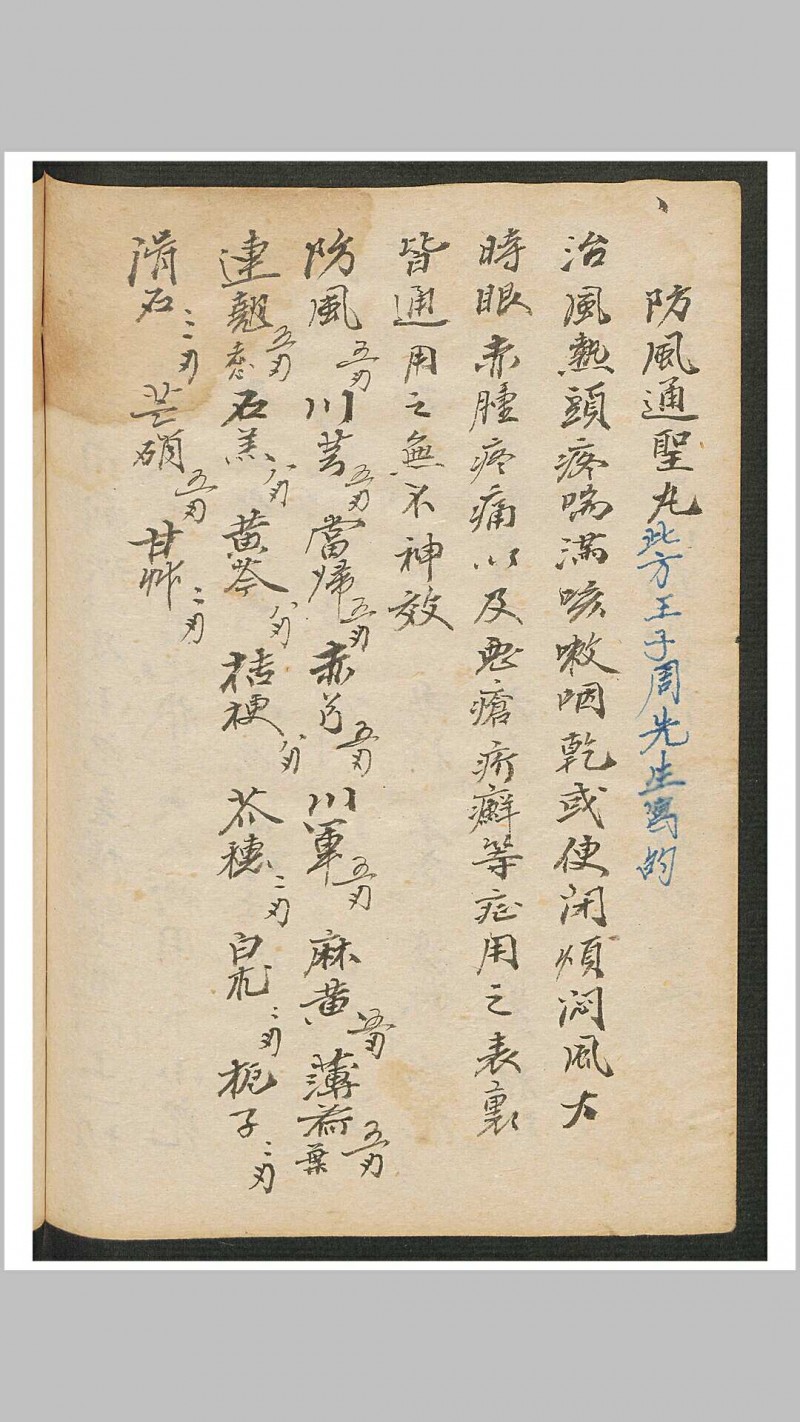 防風通聖丸 此方王子周先生寫的
治風熱頭疼喘滿咳嗽咽乾或使閉煩悶風大
時眼赤腫疼痛以及惡瘡疥癬等症用之表裏
皆通用之無不神效
防風五刄 川芎五刄 當歸五刄 赤芍五刄 川軍五刄 麻黄五刄 薄荷葉五刄
連翹五刄 石羔八刄 黄芩八刄 桔梗八刄 芥穗二刄 白朮二刄 梔子二刄
滑石三刄 芒硝五刄 甘艸二刄